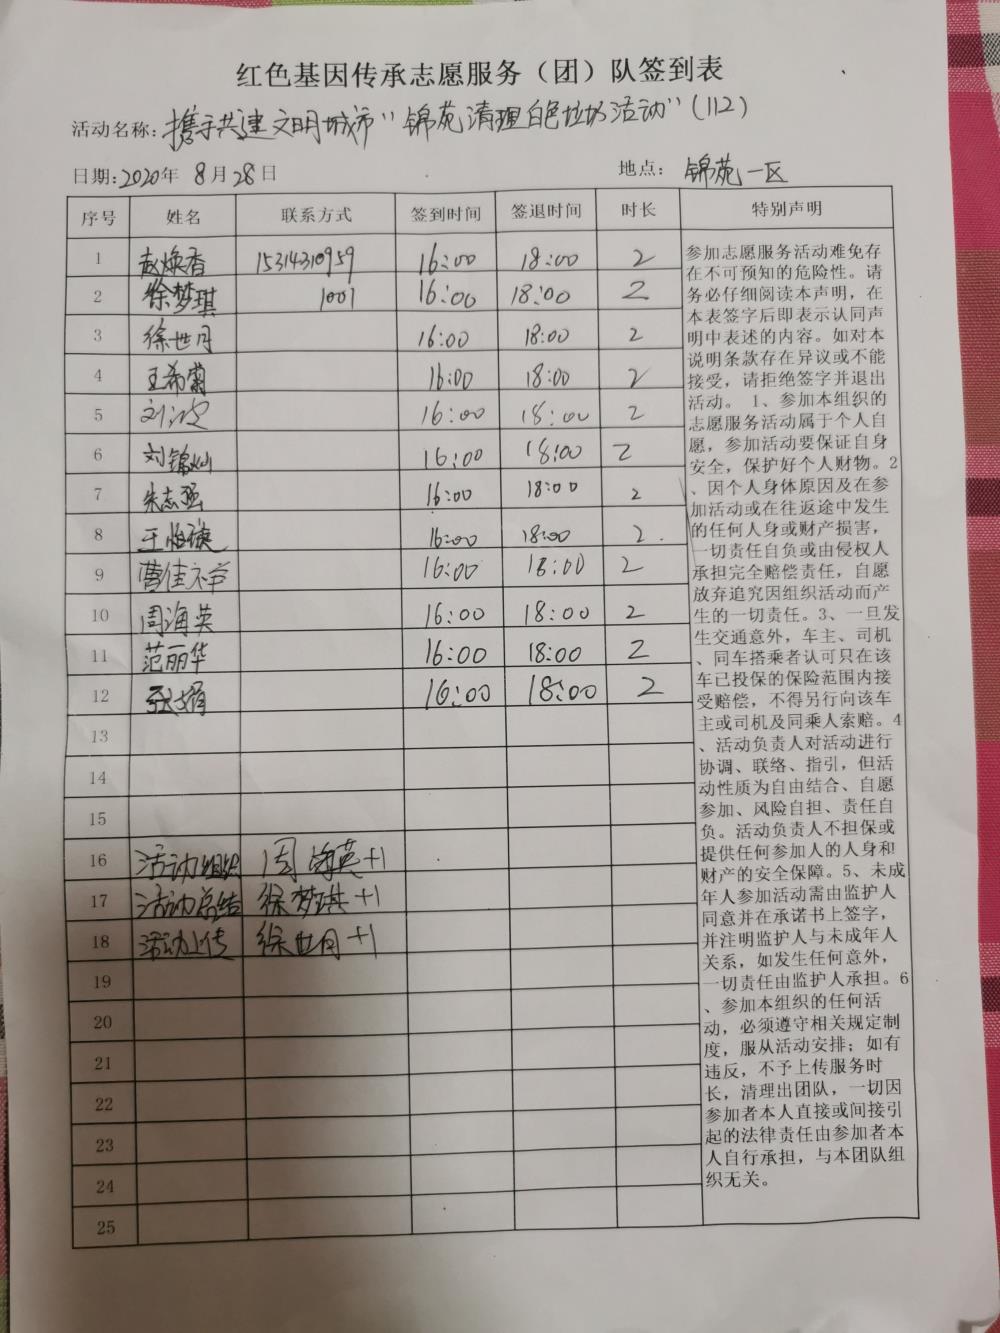 红色基因传承志愿服务（团）队签到表
活动名称：携手共建文明城市"锦苑清理白色垃圾活动"（112）
日期：2020年 8月28日 地点：锦苑一区
序号 姓名 联系方式 签到时间 签退时间 时长 特别声明
1 赵焕香 15314310959 16:00 18:00 2
2 徐梦琪 1001 16:00 18:00 2
3 徐世月 16:00 18:00 2
4 王希菊 16:00 18:00 2
5 刘 16:00 18:00 2
6 刘锦灿 16:00 18:00 2
7 朱志强 16:00 18:00 2
8 王怡 16:00 18:00 2
9 曹佳 16:00 18:00 2
10 周海英 16:00 18:00 2
11 范丽华 16:00 18:00 2
12 张娟 16:00 18:00 2
13
14
15
16 活动组织 周海英+1
17 活动总结 徐梦琪+1
18 活动上传 徐世月+1
19
20
21
22
23
24
25
参加志愿服务活动难免存
在不可预知的危险性。请
务必仔细阅读本声明，在
本表签字后即表示认同声
明中表述的内容。如对本
说明条款存在异议或不能
接受，请拒绝签字并退出
活动。 1、参加本组织的
志愿服务活动属于个人自
愿，参加活动要保证自身
安全，保护好个人财物。2
、因个人身体原因及在参
加活动或在往返途中发生
的任何人身或财产损害，
一切责任自负或由侵权人
承担完全赔偿责任，自愿
放弃追究因组织活动而产
生的一切责任。3、一旦发
生交通意外，车主、司机
、同车搭乘者认可只在该
车已投保的保险范围内接
受赔偿，不得另行向该车
主或司机及同乘人索赔。4
、活动负责人对活动进行
协调、联络、指引，但活
动性质为自由结合、自愿
参加、风险自担、责任自
负。活动负责人不担保或
提供任何参加人的人身和
财产的安全保障。5、未成
年人参加活动需由监护人
同意并在承诺书上签字，
并注明监护人与未成年人
关系，如发生任何意外，
一切责任由监护人承担。6
、参加本组织的任何活
动，必须遵守相关规定制
度，服从活动安排；如有
违反，不予上传服务时
长，清理出团队，一切因
参加者本人直接或间接引
起的法律责任由参加者本
人自行承担，与本团队组
织无关。